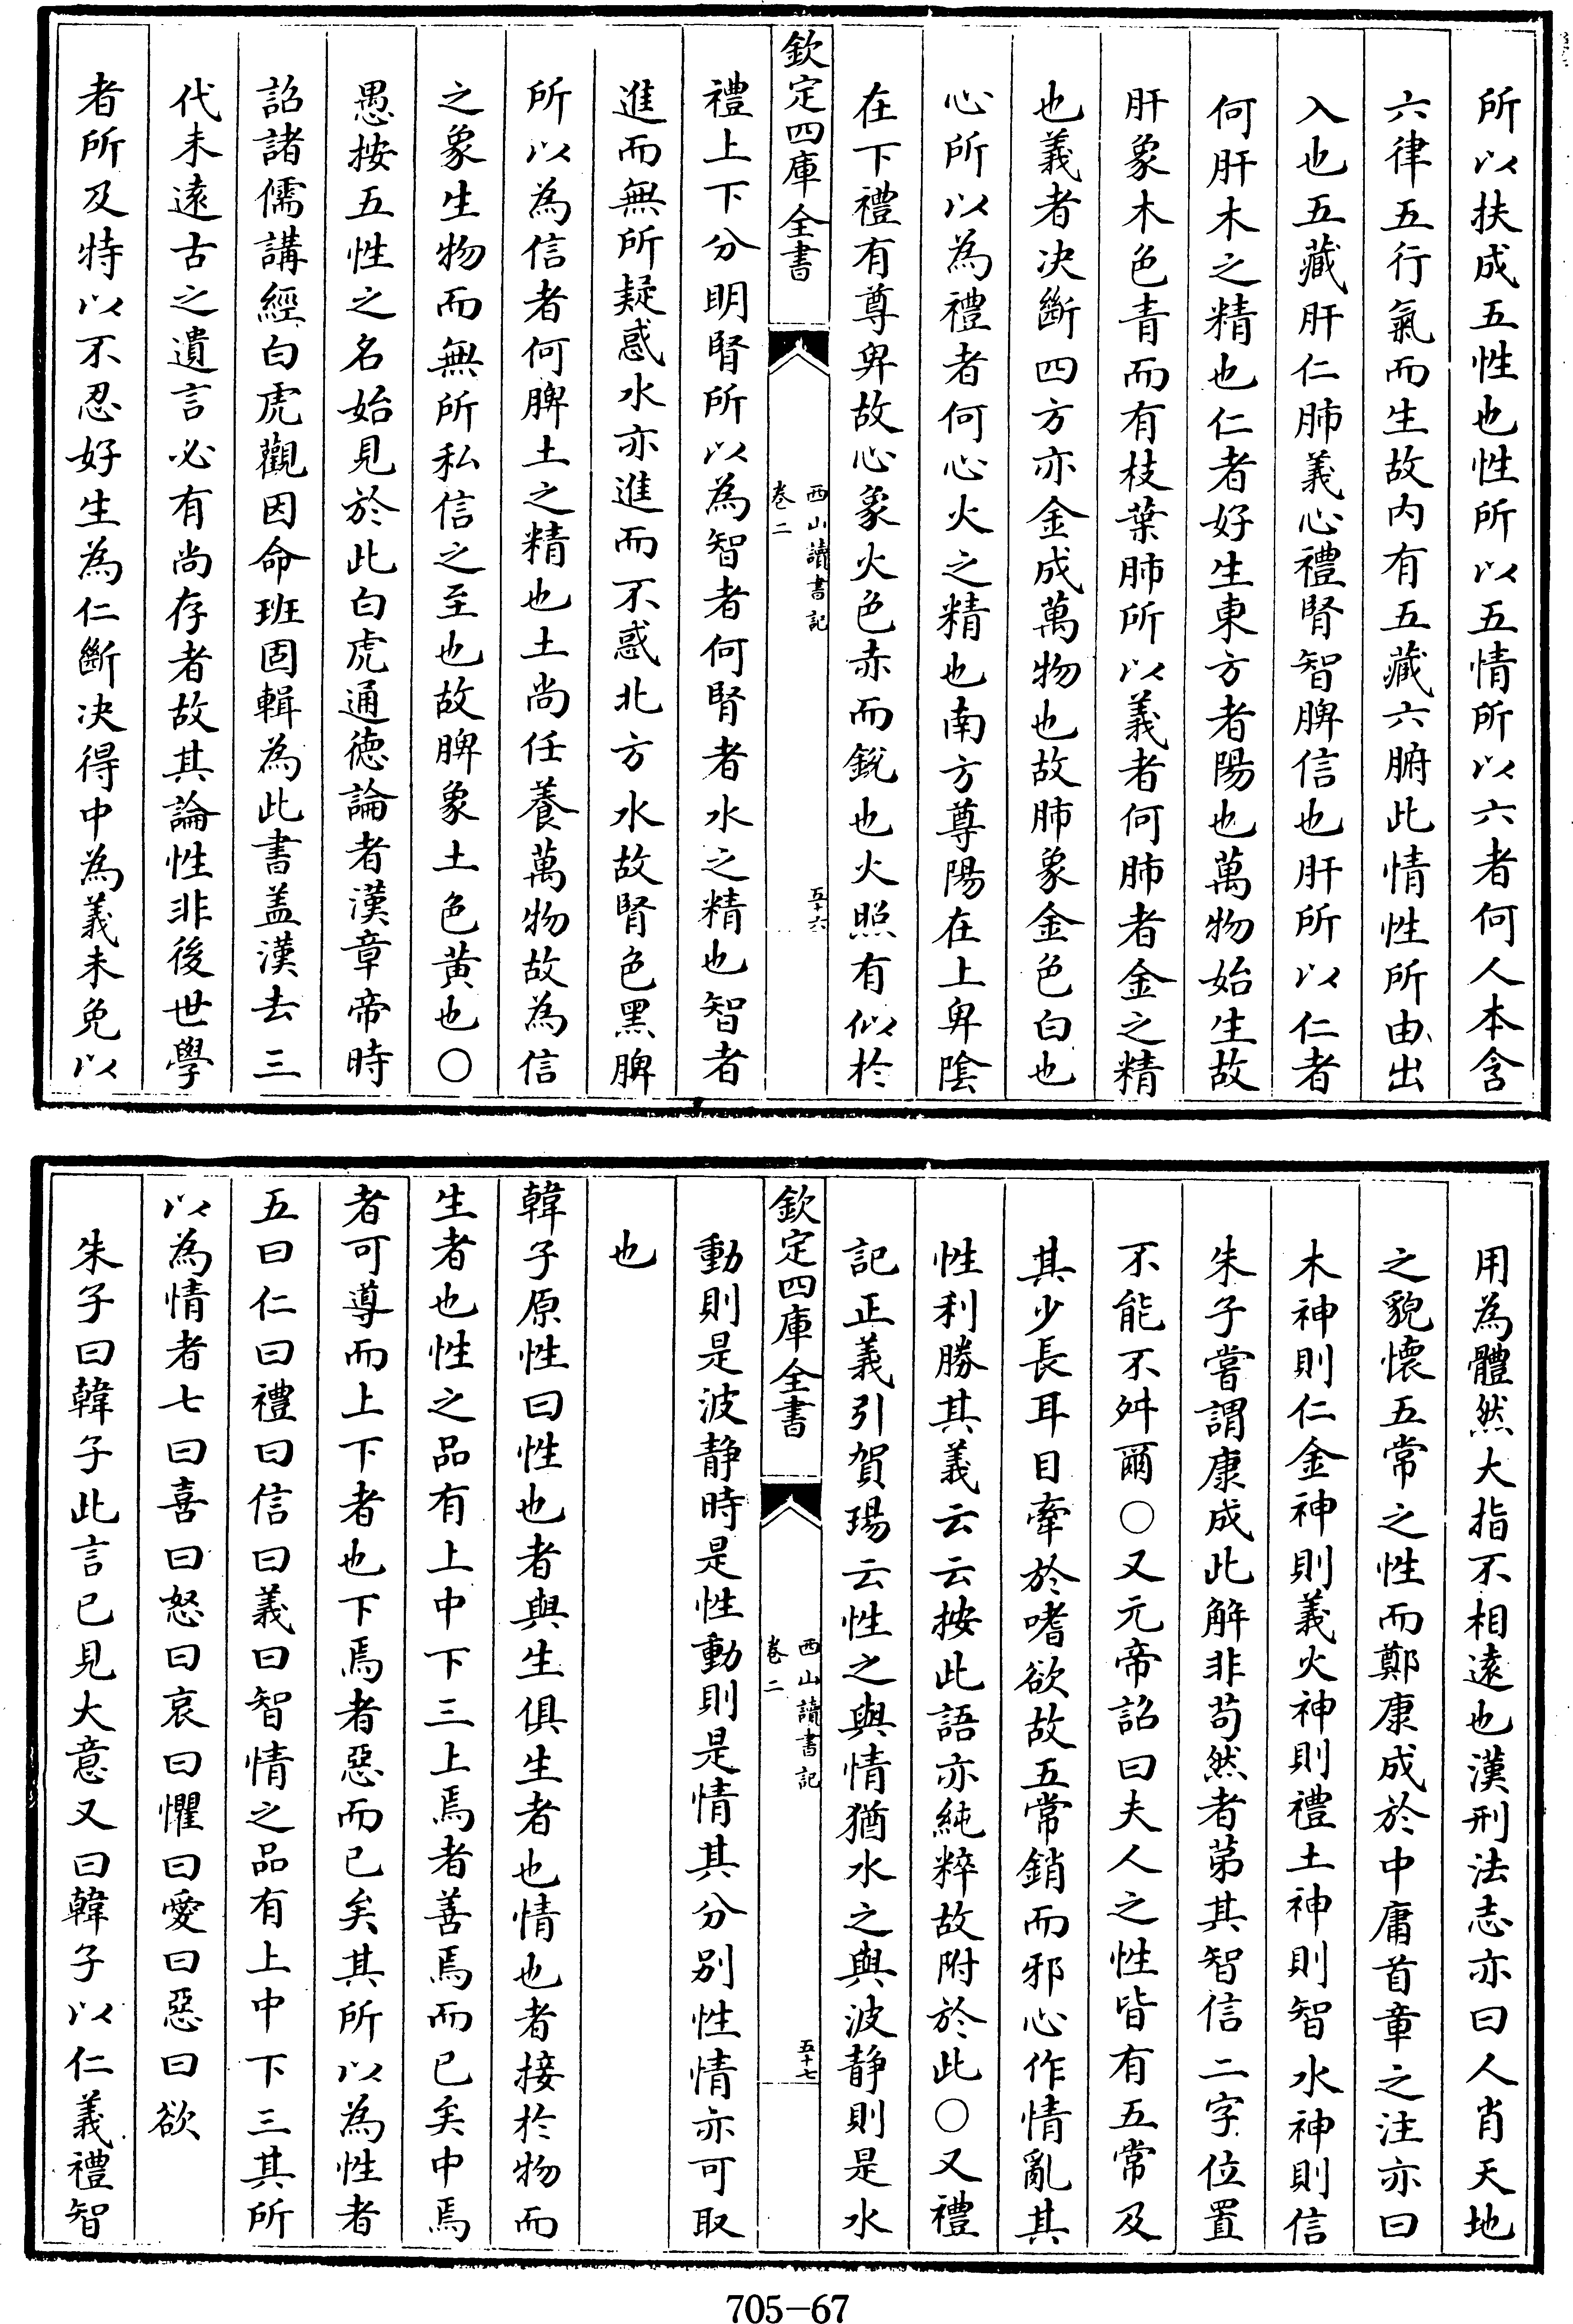 所以扶成五性也性所以五情所以六者何人本含
六律五行氣而生故内有五藏六腑此情性所由出
入也五藏肝仁肺義心禮腎智脾信也肝所以仁者
何肝木之精也仁者好生東方者陽也萬物始生故
肝象木色青而有枝葉肺所以義者何肺者金之精
也義者决斷四方亦金成萬物也故肺象金色白也
心所以為禮者何心火之精也南方尊陽在上卑陰
在下禮有尊卑故心象火色赤而鋭也火照有似於
欽定四庫全書
西山讀書記
卷二
五十六
禮上下分明腎所以為智者何腎者水之精也智者
進而無所疑惑水亦進而不惑北方水故腎色黑脾
所以為信者何脾土之精也土尚任養萬物故為信
之象生物而無所私信之至也故脾象土色黄也○
愚按五性之名始見於此白虎通徳論者漢章帝時
詔諸儒講經白虎觀因命班固輯為此書盖漢去三
代未遠古之遺言必有尚存者故其論性非後世學
者所及特以不忍好生為仁斷决得中為義未免以
用為體然大指不相遠也漢刑法志亦曰人肖天地
之貌懷五常之性而鄭康成於中庸首章之注亦曰
木神則仁金神則義火神則禮土神則智水神則信
朱子嘗謂康成此解非苟然者苐其智信二字位置
不能不舛爾○又元帝詔曰夫人之性皆有五常及
其少長耳目牽於嗜欲故五常銷而邪心作情亂其
性利勝其義云云按此語亦純粹故附於此○又禮
記正義引賀瑒云性之與情猶水之與波静則是水
欽定四庫全書
西山讀書記
卷二
五十七
動則是波静時是性動則是情其分别性情亦可取
也
韓子原性曰性也者與生俱生者也情也者接於物而
生者也性之品有上中下三上焉者善焉而已矣中焉
者可導而上下者也下焉者惡而已矣其所以為性者
五曰仁曰禮曰信曰義曰智情之品有上中下三其所
以為情者七曰喜曰怒曰哀曰懼曰愛曰惡曰欲
朱子曰韓子此言已見大意又曰韓子以仁義禮智
705-67